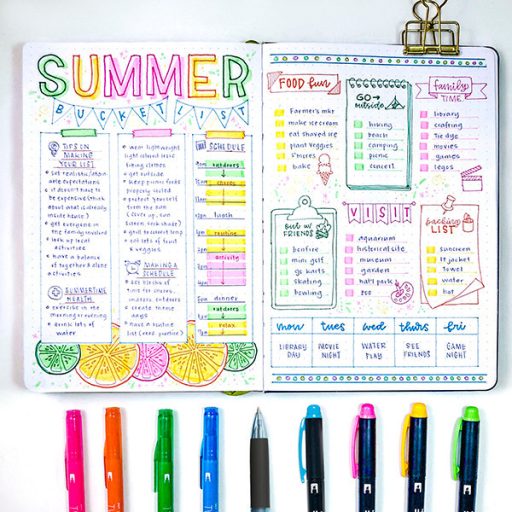 SUMMER
BUCKET LIST
TIPS ON
MAKING
YOUR LIST
• set realistic/attain
able expectations
• it doesn't have to
be expensive (think
about what is already
inside house)
• get everyone in
the family involved
• look up local
activities
• have a balance
of together & alone
activities
SUMMERTIME
HEALTH
• exercise in the
morning or evening
• drink lots of
water
• wear lightweight
light colored loose
fitting clothes
• get outside
• keep picnic foods
properly cooled
• protect yourself
from the sun
(cover up, sun
screen, seek shade)
• eat lots of fruit
& veggies
MAKING A
SCHEDULE
• set blocks of
time for chores,
indoors, outdoors
• create theme
days
• have a routine
SCHEDULE
outdoors
chores
lunch
routine
activity
dinner
outdoors
relax
FOOD fun
farmer's mkt
make ice cream
eat shaved ice
plant veggies
s'mores
bake
GO →
outside
hiking
beach
camping
picnic
concert
family
TIME
library
crafting
tie dye
movies
games
legos
FRIENDS
bonfire
mini golf
go karts
skating
bowling
VISIT
aquarium
historical site
museum
garden
nat'l park
zoo
packing
LIST
sunscreen
towel
water
hat
mon tues wed thurs fri
LIBRARY MOVIE WATER SEE GAME
DAY NIGHT PLAY FRIENDS NIGHT